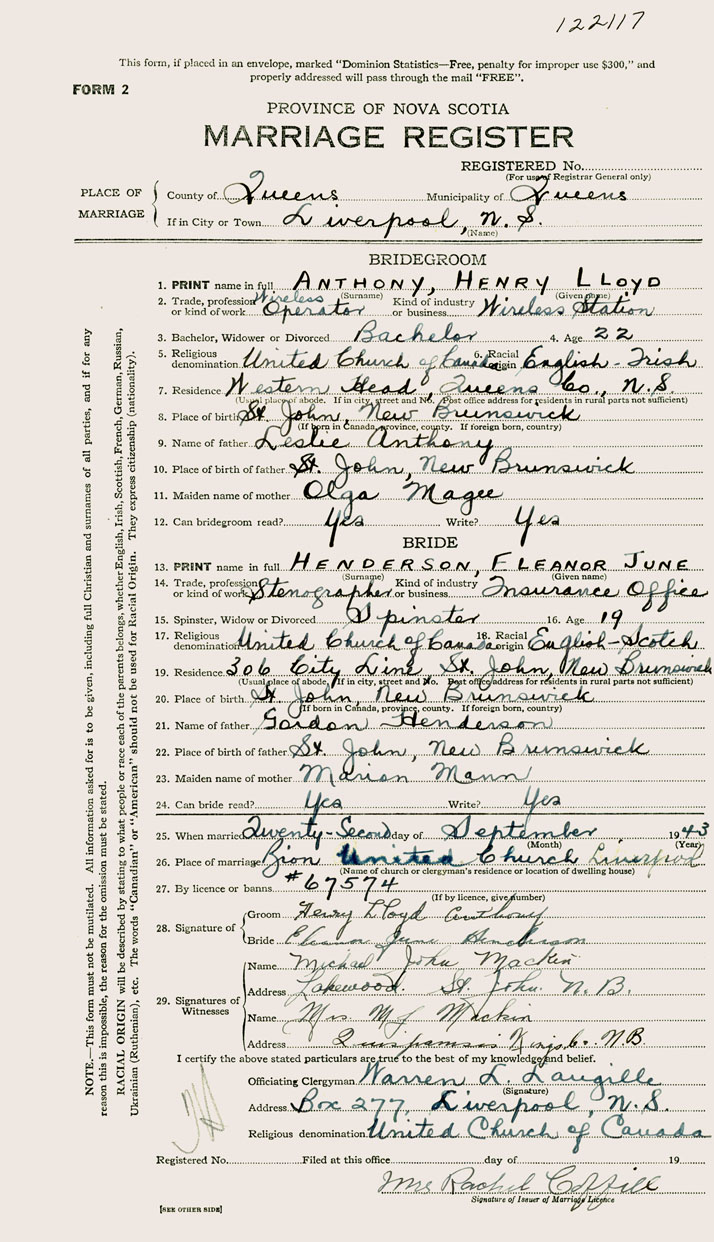 122117
This form, if placed in an envelope, marked "Dominion Statistics—Free, penalty for improper use $300," and
properly addressed will pass through the mail "FREE".
FORM 2
PROVINCE OF NOVA SCOTIA
MARRIAGE REGISTER
REGISTERED No.
(For use of Registrar General only)
PLACE OF MARRIAGE
County of Queens Municipality of Queens
If in City or Town Liverpool, N.S.
(Name)
BRIDEGROOM
1. PRINT name in full ANTHONY, HENRY LLOYD
(Surname) (Given name)
2. Trade, profession or kind of work Wireless Operator Kind of industry or business Wireless Station
3. Bachelor, Widower or Divorced Bachelor 4. Age 22
5. Religious denomination United Church of Canada 6. Racial origin English-Irish
7. Residence Western Head, Queens Co., N.S.
(Usual place of abode. If in city, street and No. Post office address for residents in rural parts not sufficient)
8. Place of birth St. John, New Brunswick
(If born in Canada, province, county. If foreign born, country)
9. Name of father Leslie Anthony
10. Place of birth of father St. John, New Brunswick
11. Maiden name of mother Olga Magee
12. Can bridegroom read? Yes Write? Yes
BRIDE
13. PRINT name in full HENDERSON, ELEANOR JUNE
(Surname) (Given name)
14. Trade, profession or kind of work Stenographer Kind of industry or business Insurance Office
15. Spinster, Widow or Divorced Spinster 16. Age 19
17. Religious denomination United Church of Canada 18. Racial origin English-Scotch
19. Residence 306 City Line, St. John, New Brunswick
(Usual place of abode, If in city, street and No. Post office address for residents in rural parts not sufficient)
20. Place of birth St. John, New Brunswick
(If born in Canada, province, county. If foreign born, country)
21. Name of father Gordon Henderson
22. Place of birth of father St. John, New Brunswick
23. Maiden name of mother Marion Mann
24. Can bride read? Yes Write? Yes
25. When married Twenty-Second day of September 1943
(Month) (Year)
26. Place of marriage Zion United Church Liverpool
(Name of church or clergyman's residence or location of dwelling house)
27. By licence or banns #67574
(If by licence, give number)
28. Signature of
Groom Henry Lloyd Anthony
Bride Eleanor June Henderson
29. Signatures of Witnesses
Name Michael John Mackin
Address Lakewood. St. John. N.B.
Name Mrs M J Mackin
Address Quispamsis Kings Co. N.B.
I certify the above stated particulars are true to the best of my knowledge and belief.
Officiating Clergyman Warren L. Langille
(Signature)
Address Box 277, Liverpool, N.S.
Religious denomination United Church of Canada
Registered No. Filed at this office day of 19
Mrs Rachel Coffill
Signature of Issuer of Marriage Licence
[SEE OTHER SIDE]
NOTE.—This form must not be mutilated. All information asked for is to be given, including full Christian and surnames of all parties, and if for any
reason this is impossible, the reason for the omission must be stated.
RACIAL ORIGIN will be described by stating to what people or race each of the parents belongs, whether English, Irish, Scottish, French, German, Russian,
Ukrainian (Ruthenian), etc. The words "Canadian" or "American" should not be used for Racial Origin. They express citizenship (nationality).